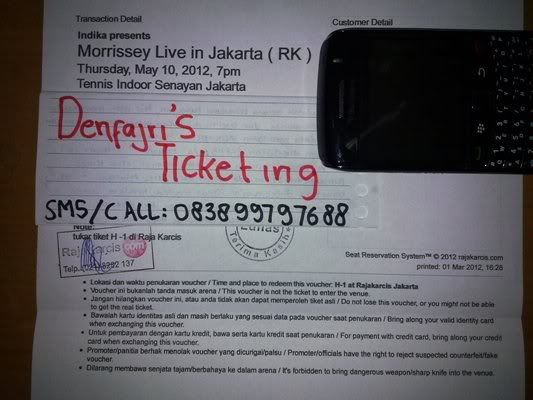 Transaction Detail
Customer Detail
Indika presents
Morrissey Live in Jakarta ( RK )
Thursday, May 10, 2012, 7pm
Tennis Indoor Senayan Jakarta
Denfajri's
Ticketing
SMS/CALL: 083899797688
Note:
tukar tiket H -1 di Raja Karcis
Terima Kasih
Seat Reservation System™ © 2012 rajakarcis.com
printed: 01 Mar 2012, 16:28
• Lokasi dan waktu penukaran voucher / Time and place to redeem this voucher: H-1 at Rajakarcis Jakarta
• Voucher ini bukanlah tanda masuk arena / This voucher is not the ticket to enter the venue.
• Jangan hilangkan voucher ini, atau anda tidak akan dapat memperoleh tiket asli / Do not lose this voucher, or you might not be able
to get the real ticket.
• Bawalah kartu identitas asli dan masih berlaku yang sesuai data pada voucher saat penukaran / Bring along your valid identity card
when exchanging this voucher.
• Untuk pembayaran dengan kartu kredit, bawa serta kartu kredit saat penukaran / For payment with credit card, bring along your credit
card when exchanging this voucher.
• Promoter/panitia berhak menolak voucher yang dicurigai/palsu / Promoter/officials have the right to reject suspected counterfeit/fake
voucher.
• Dilarang membawa senjata tajam/berbahaya ke dalam arena / It's forbidden to bring dangerous weapon/sharp knife into the venue.